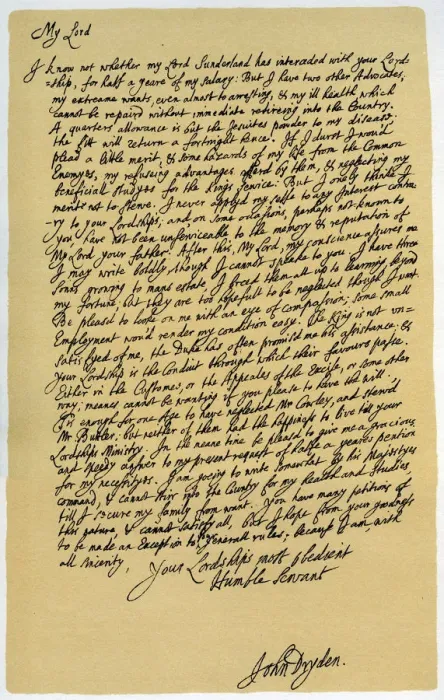 My Lord
I know not whether my Lord Sunderland has interceded with your Lord
=ship, for half a yeare of my salary: But I have two other Advocates,
my extreame wants, even almost to arresting, & my ill health which
cannot be repaird without immediate retireing into the Country.
A quarters allowance is but the Jesuites powder to my disease;
the fitt will return a fortnight hence. If I durst I wou'd
plead a little merit, & some hazards of my life from the Common
Enemyes, my refuseing advantages offerd by them, & neglecting my
beneficiall studyes for the King's service: But I onely thinke I
merit not to sterve. I never applyd my selfe to any Interest contra
=ry to your Lordship's; and on some occasions, perhaps not known to
you, have not been unserviceable to the memory & reputation of
My Lord your father. After this, My Lord, my conscience assures me
I may write boldly, though I cannot speake to you. I have three
Sonns growing to mans estate, I breed them all up to learning, beyond
my fortune; but they are too hopefull to be neglected though I want.
Be pleasd to looke on me with an eye of compassion; some small
Employment wou'd render my condition easy. The King is not un=
satisfyed of me, the Duke has often promisd me his assistance; &
Your Lordship is the Conduit through which their favours passe.
Either in the Customes, or the Appeales of the Excise, or some other
way; meanes cannot be wanting if you please to have the will.
Tis enough for one Age to have neglected Mr Cowley, and sterv'd
Mr Buttler; but neither of them had the happiness to live till your
Lordship's Ministry. In the meane time be pleasd to give me a gracious
and speedy answer to my present request of halfe a yeares pention
for my necessityes. I am going to write somewhat by his Majestyes
command, & cannot stirr into the Country for my health and studies,
till I secure my family from want. You have many petitions of
this nature, & cannot satisfy all, but I hope from your goodness
to be made an Exception to your generall rules; because I am, with
all sincerity,
Your Lordship's most obedient
Humble Servant
John Dryden.